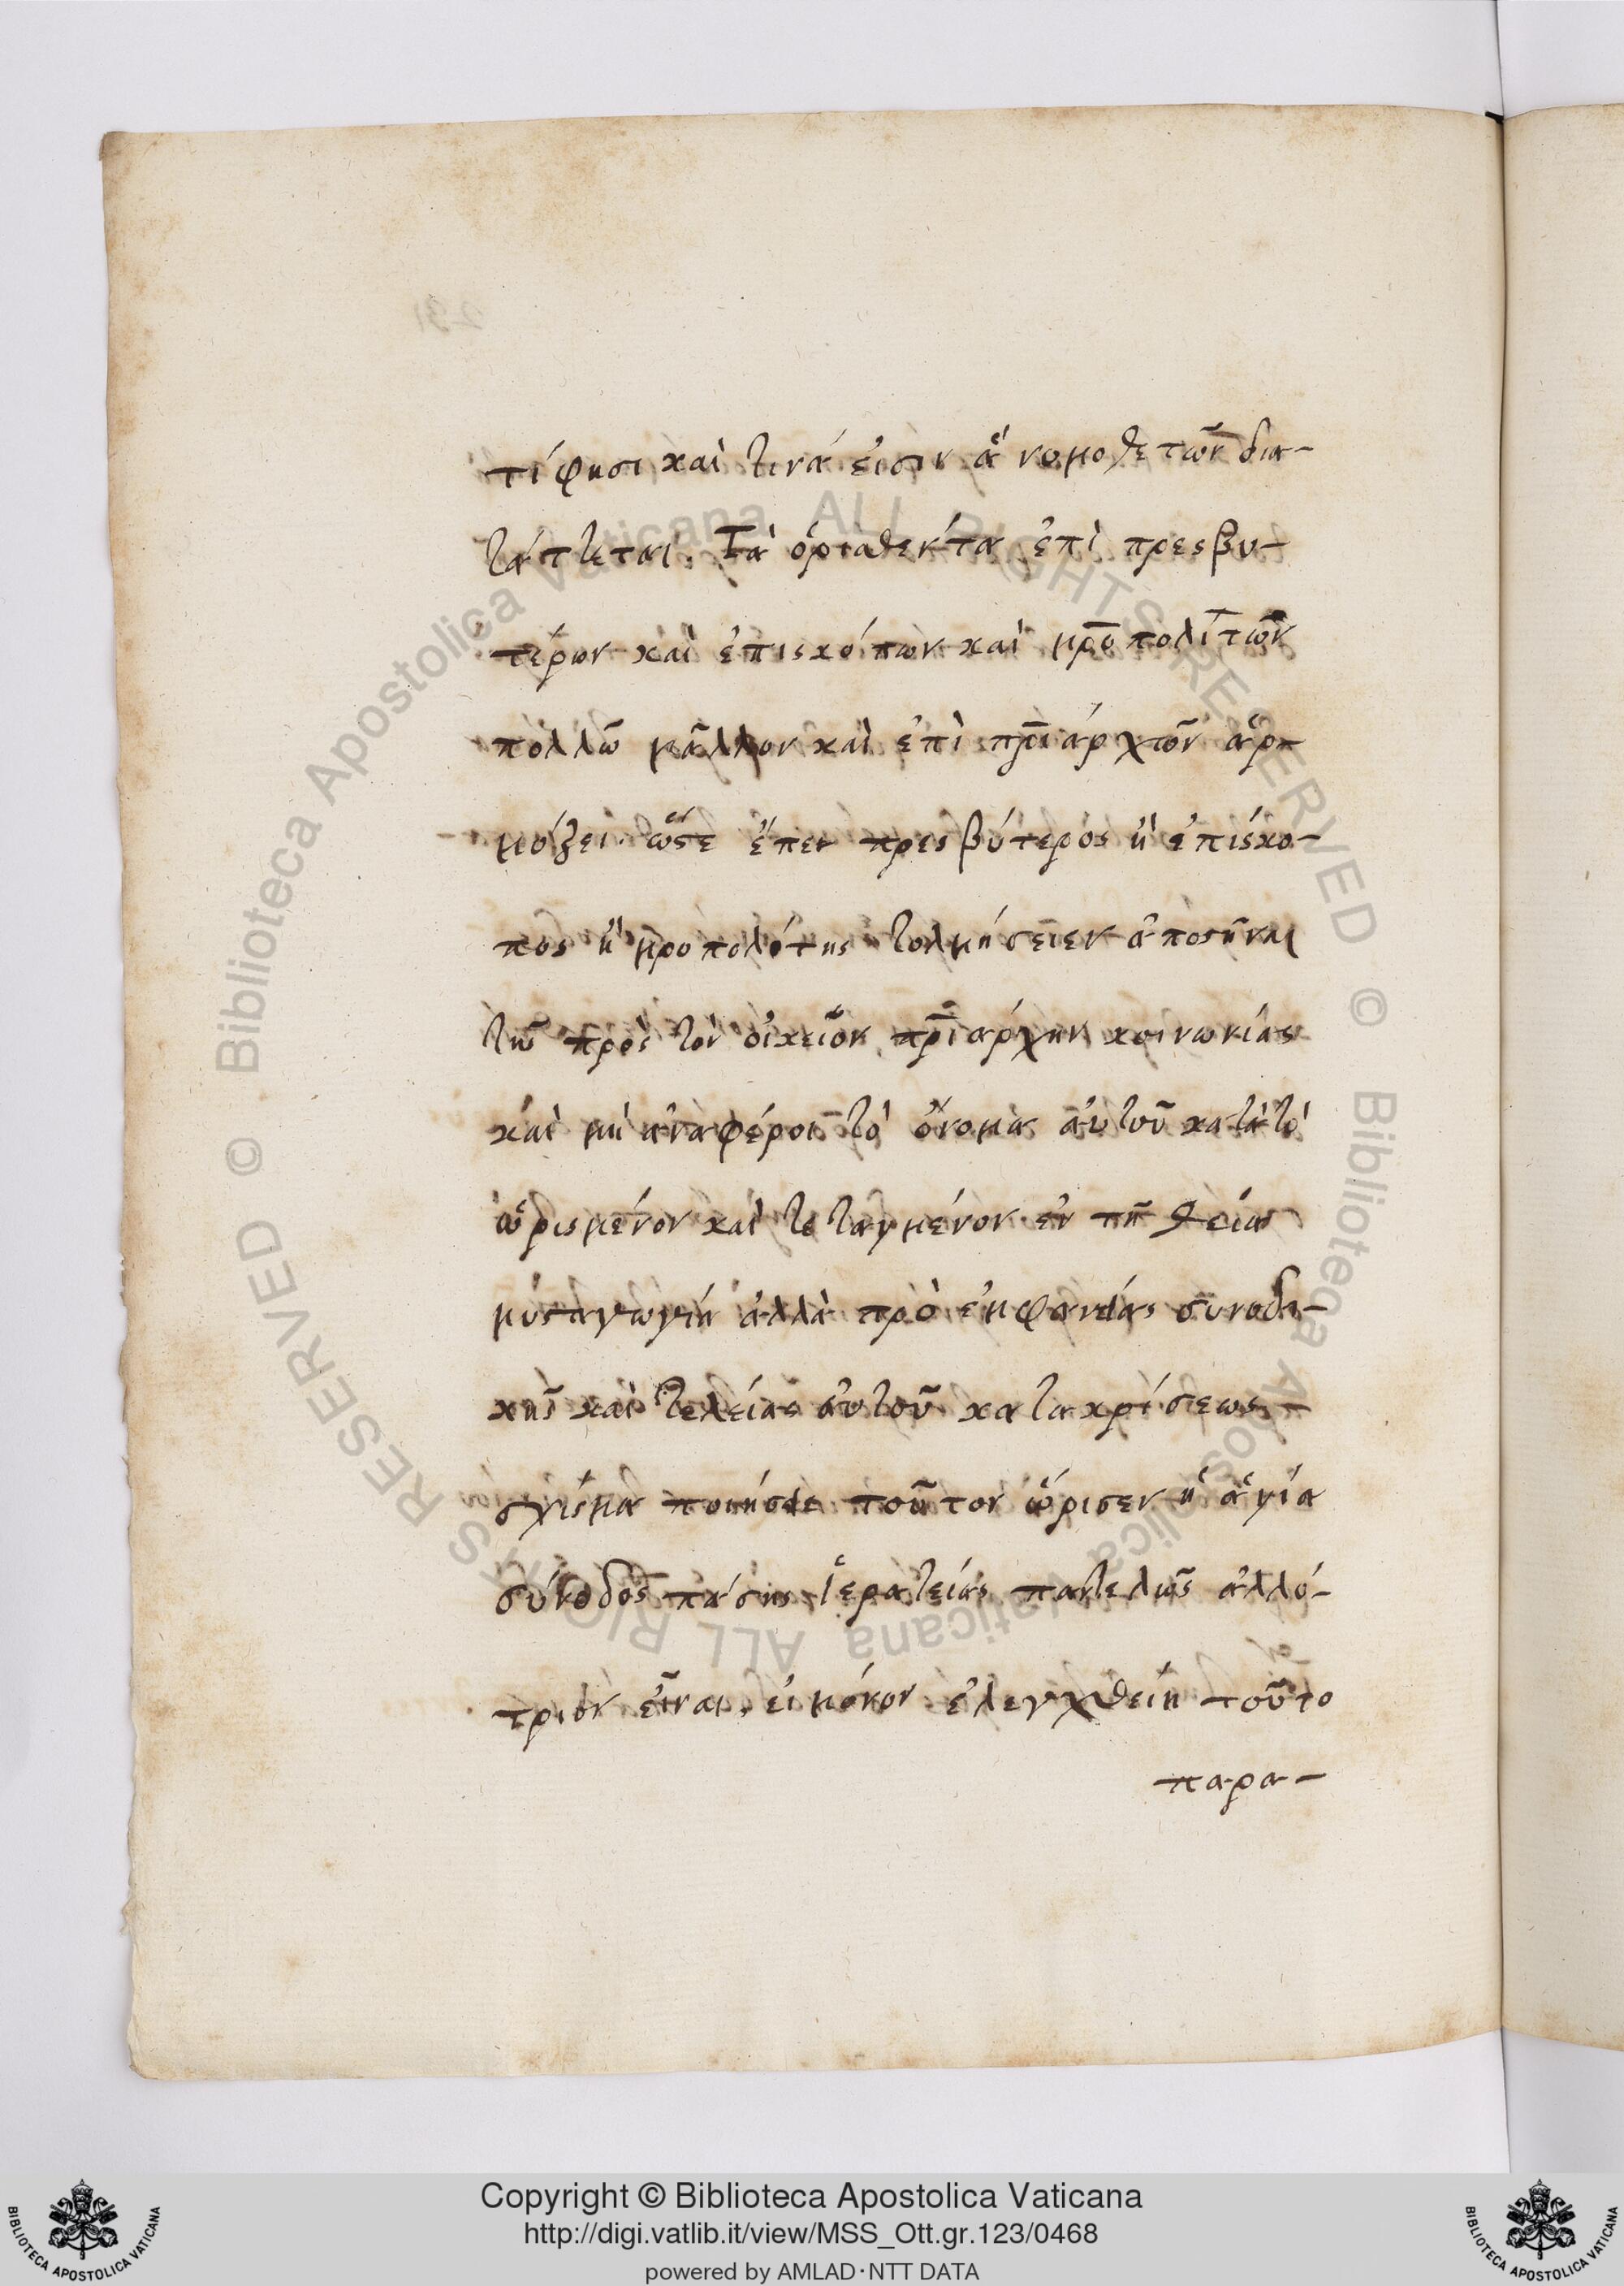 τί φησι καὶ τινά εἰσιν ἃ νομοθετῶν δια-
τάττεται. Τὰ ὁρισθέντα ἐπὶ πρεσβυ-
τέρων καὶ ἐπισκόπων καὶ μροπολιτῶν
πολλῶ μᾶλλον καὶ ἐπὶ πριαρχῶν ἁρ-
μόζει. ὥστε εἴπερ πρεσβύτερος ἢ ἐπίσκο-
πος ἢ μροπολίτης τολμήσειεν ἀποστῆναι
τῆς πρὸς τὸν οἰκεῖον πριάρχην κοινωνίας
καὶ μὴ ἀναφέροι τὸ ὄνομα αὐτοῦ κατὰ τὸ
ὡρισμένον καὶ τεταγμένον ἐν τῆ θεία
μυσταγωγία ἀλλὰ πρὸ ἐμφανείας συνοδι-
κῆς καὶ τελείας αὐτοῦ κατακρίσεως
σχίσμα ποιήσει τοῦτον ὥρισεν ἡ ἁγία
σύνοδος πάσης ἱερατείας παντελῶς ἀλλό-
τριον εἶναι. εἰ μόνον ἐλεγχθείη τοῦτο
παρα-
Copyright © Biblioteca Apostolica Vaticana
http://digi.vatlib.it/view/MSS_Ott.gr.123/0468
powered by AMLAD·NTT DATA
BIBLIOTECA APOSTOLICA VATICANA
BIBLIOTECA APOSTOLICA VATICANA
© Biblioteca Apostolica Vaticana ALL RIGHTS RESERVED
© Biblioteca Apostolica Vaticana ALL RIGHTS RESERVED